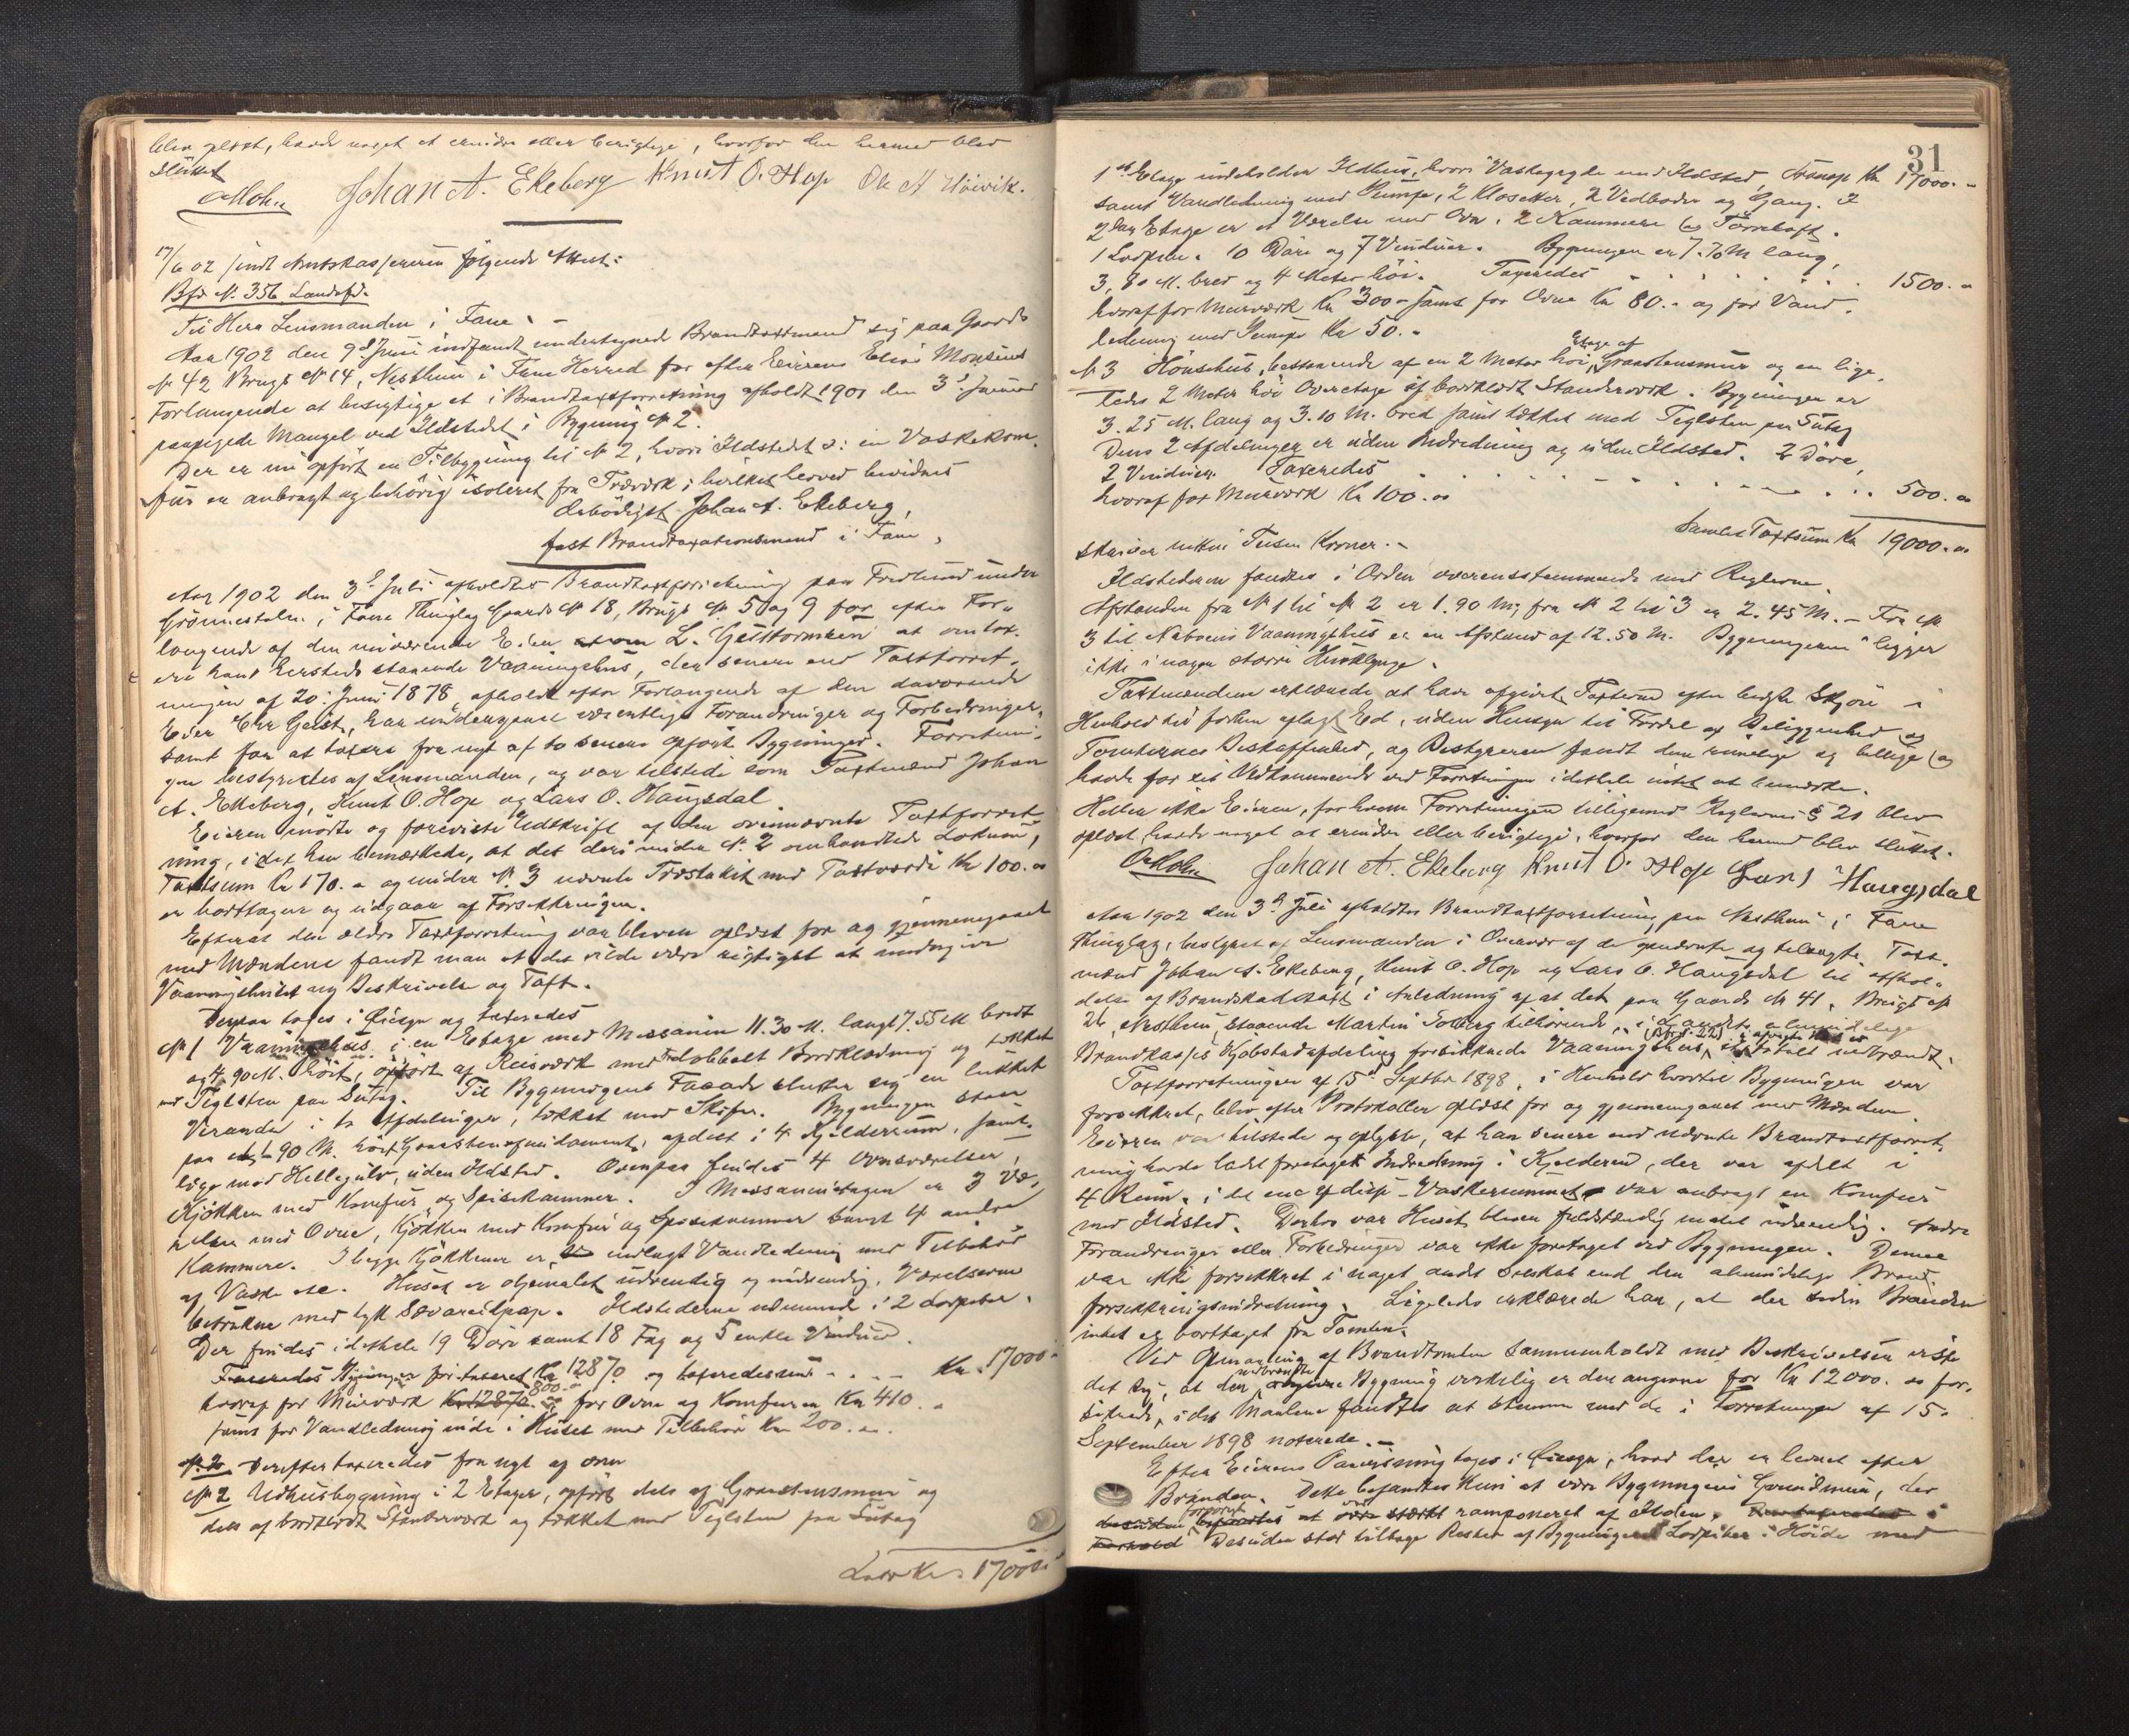 blev oplæst, havde noget at erindre eller berigtige, hvorfor den hermed blev
sluttet
Johan A. Ekeberg Knut O. Hop Ole A Höivik.
17/6 02 sendt Amtskassereren følgende Attest:
Bfd. N. 356 Landsfd.
Til Herr Lensmanden i Fane. -
Aar 1902 den 9d Juni indfandt undertegnede Brandtaxtmand sig paa Gaards
N 42 Brugs N 14, Nesttun i Fane Herred for efter Eierens Elias Monsens
Forlangende at besigtige et i Brandtaxtforretning afholdt 1901 den 3d Januar
paapegede Mangel ved Ildstedet i Bygning N 2.
Der er nu opført en Tilbygning til N 2, hvori Ildstedet o: en Vaskekom-
fur er anbragt og behörig isoleret fra Træværk, hvilket herved bevidnes
Ærbödigst Johan A. Ekeberg,
fast Brandtaxationsmand i Fane,
Aar 1902 den 3d Juli afholdtes Brandtaxtforretning paa Fredlund under
Grönnestølen i Fane Thinglag Gaards N 18, Brugs N 5 og 9 for efter For-
langende af den nuværende Eier L. Geist at omtax-
ere hans hersteds staaende Vaaningshus, der senere end Taxtforret-
ningen af 20. Juni 1878, afholdt efter Forlangende af den daværende
Eier Chr Geist, har undergaaet væsentlige Forandringer og Forbedringer,
samt for at taxere fra nyt af to senere opført Bygninger. Forretnin-
gen bestyredes af Lensmanden, og var tilstede som Taxtmænd Johan
A. Ekeberg, Knut O. Hop og Lars O. Haugsdal.
Eieren mödte og foreviste Udskrift af den ovennævnte Taxtforret-
ning, idet han bemærkede, at det deri under N. 2 omhandlede Lokum,
Taxtsum Kr 170. - og under N. 3 nævnte Træstakit med Taxtværdi Kr 100. oo
er borttagne og udgaar af Forsikringen.
Efterat den ældre Taxtforretning var bleven oplæst for og gjennemgaaet
med Mændene fandt man at det vilde være rigtigst at undergive
Vaaningshuset ny Beskrivelse og Taxt.
Derpaa toges i Öiesyn og taxeredes
N 1 Vaaningshus i en Etage med Messanin 11.30 M. langt 7.55 M bredt
og 4.90 M. höit, opført af Reisværk med dobbelt Bordklædning og tækket
med Teglsten paa Sutag. Til Bygningens Facade slutter sig en lukket
Veranda i to Afdelinger, tækket med Skifer. Bygningen staar
paa et 1.90 M. höit Graastensfundament, opdelt i 4 Kjelderrum, samt-
lige med Hellegulv, uden Ildsted. Ovenpaa findes 4 Ovnsværelser,
Kjökken med Komfur og Spisekammer. I Messaninetagen er 3 Væ-
relser med Ovne, Kjökken med Komfur og Spisekammer samt 4 andre
Kammere. I begge Kjökkener er indlagt Vandledning med Tilbehör
af Vaske etc. Huset er oljemalet udvendig og indvendig. Værelserne
betrukne med tyk pap. Ildstederne udmunde i 2 Lodpiber.
Der findes idethele 19 Döre samt 18 Fag og 5 enkle Vinduer.
Bygningen før taxeret Kr 12870 og taxeredes nu . . . . Kr. 17000 -
hvoraf for Murværk Kr 12870. 800. - for Ovne og Komfurer Kr 410. -
samt for Vandledning inde i Huset med Tilbehör Kr 200. -.
N. 2. Derefter taxeredes fra nyt af
N 2 Udhusbygning i 2 Etager, opført dels af Graastensmur og
dels af bordklædt Stænderværk og tækket med Teglsten paa Sutag
Lat Kr. 17000
31
1ste Etage indeholder Ildhus, hvori Vaskegryde med Ildsted, Transp Kr 17000. -
samt Vandledning med Pumpe, 2 Klosetter, 2 Vedboder og Gang. I
2den Etage er et Værelse med Ovn, 2 Kammere og Törreloft.
1 Lodpibe. 10 Döre og 7 Vinduer. Bygningen er 7.70 M lang,
3,80 M. bred og 4 Meter höi. Taxeredes . . . . . . 1500. -
hvoraf for Murværk Kr 300 - samt for Ovne Kr 80. - og for Vand-
ledning med Pumpe Kr 50. -
N 3 Hönsehus, bestaaende af en 2 Meter höi Etage af Graastensmur og en lige-
ledes 2 Meter höi Overetage af bordklædt Stænderværk. Bygningen er
3.25 M. lang og 3.10 M. bred samt tækket med Teglsten paa Sutag
Dens 2 Afdelinger er uden Indredning og uden Ildsted. 2 Döre,
2 Vinduer. Taxeredes . . . . . . . . 500. oo
hvoraf for Murværk Kr 100. oo
Samlet Taxtsum Kr 19000. oo
skriver nitten Tusen Kroner. -
Ildstederne fandtes i Orden overensstemmende med Reglerne.
Afstanden fra N 1 til N 2 er 1.90 M; fra N 2 til 3 er 2.45 M. - Fra N
3 til Naboens Vaaningshus er en Afstand af 12.50 M. Bygningerne ligger
ikke i nogen større Husklynge.
Taxtmændene erklærede at have afgivet Taxterne efter bedste Skjön i
Henhold til forhen aflagt Ed, uden Hensyn til Fordel af Beliggenhed og
Tomternes Beskaffenhed, og Bestyreren fandt dem rimelige og billige og
havde for sit Vedkommende ved Forretningen idethele intet at bemærke.
Heller ikke Eieren, for hvem Forretningen tilligemed Reglernes § 20 blev
oplæst, havde noget at erindre eller berigtige, hvorfor den hermed blev sluttet.
Johan A. Ekeberg Knut O. Hop Lars Haugsdal
Aar 1902 den 3d Juli afholdtes Brandtaxtforretning paa Nesttun i Fane
Thinglag, bestyret af Lensmanden i Overvær af de opnævnte og tilkaldte Taxt-
mænd Johan A. Ekeberg, Knut O. Hop og Lars O. Haugsdal til afhol-
delse af Brandskadetaxt i Anledning af at det paa Gaards N 41, Brugs N
26, Nesttun, staaende Martin Solberg tilhörende, i Landets almindelige
Brandkasses Kjöbstadafdeling forsikrede Vaaningshus, er totalt nedbrændt.
Taxtforretningen af 15de Septbr 1898, i Henhold hvortil Bygningen var
forsikkret, blev efter Protokollen oplæst for og gjennemgaaet med Mændene.
Eieren var tilstede og oplyste, at han senere end nævnte Brandtaxtforret-
ning havde ladet foretaget Indredning i Kjelderen, der var afdelt i
4 Rum, i det ene af disse - Vaskerummet - var anbragt en Komfur
med Ildsted. Derhos var Huset bleven fuldstændig malet udvendig. Andre
Forandringer eller Forbedringer var ikke foretaget ved Bygningen. Denne
var ikke forsikkret i noget andet Selskab end den almindelige Brand-
forsikkringsindretning. Ligeledes erklærede han, at der siden Branden
intet er borttaget fra Tomten.
Ved Opmaaling af Brandtomten sammenholdt med Beskrivelsen viste
det sig, at den nedbrændte Bygning virkelig er den angivne for Kr 12000. oo for-
sikrede, idet Maalene fandtes at stemme med de i Forretningen af 15.
September 1898 noterede. -
Efter Eierens Paavisning toges i Öiesyn, hvad der er levnet efter
Branden. Dette befandtes kun at være Bygningens Grundmur, der
forøvrigt at være stærkt ramponeret af Ilden.
Forhold Desuden stod tilbage Rester af Bygningens Lodpiber i Höide med